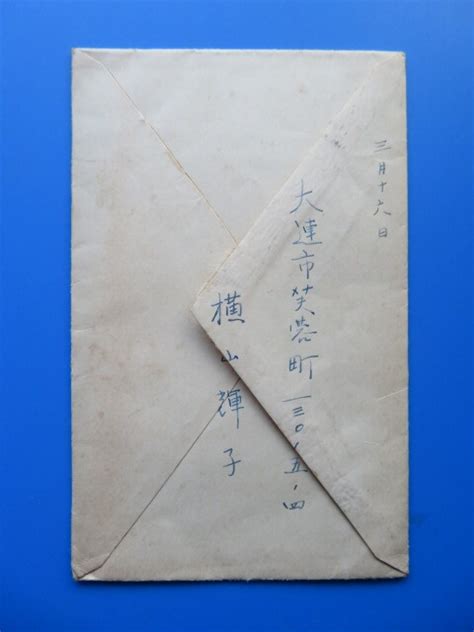 三月十六日
大連市芙蓉町一三〇ノ五ノ四
横山輝子